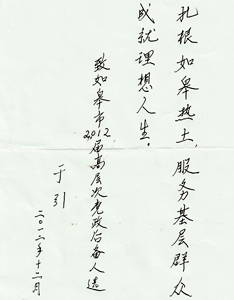 扎根如皋热土，服务基层群众
成就理想人生。
致如皋市2012届高层次党政后备人选
于引
二〇一二年十二月